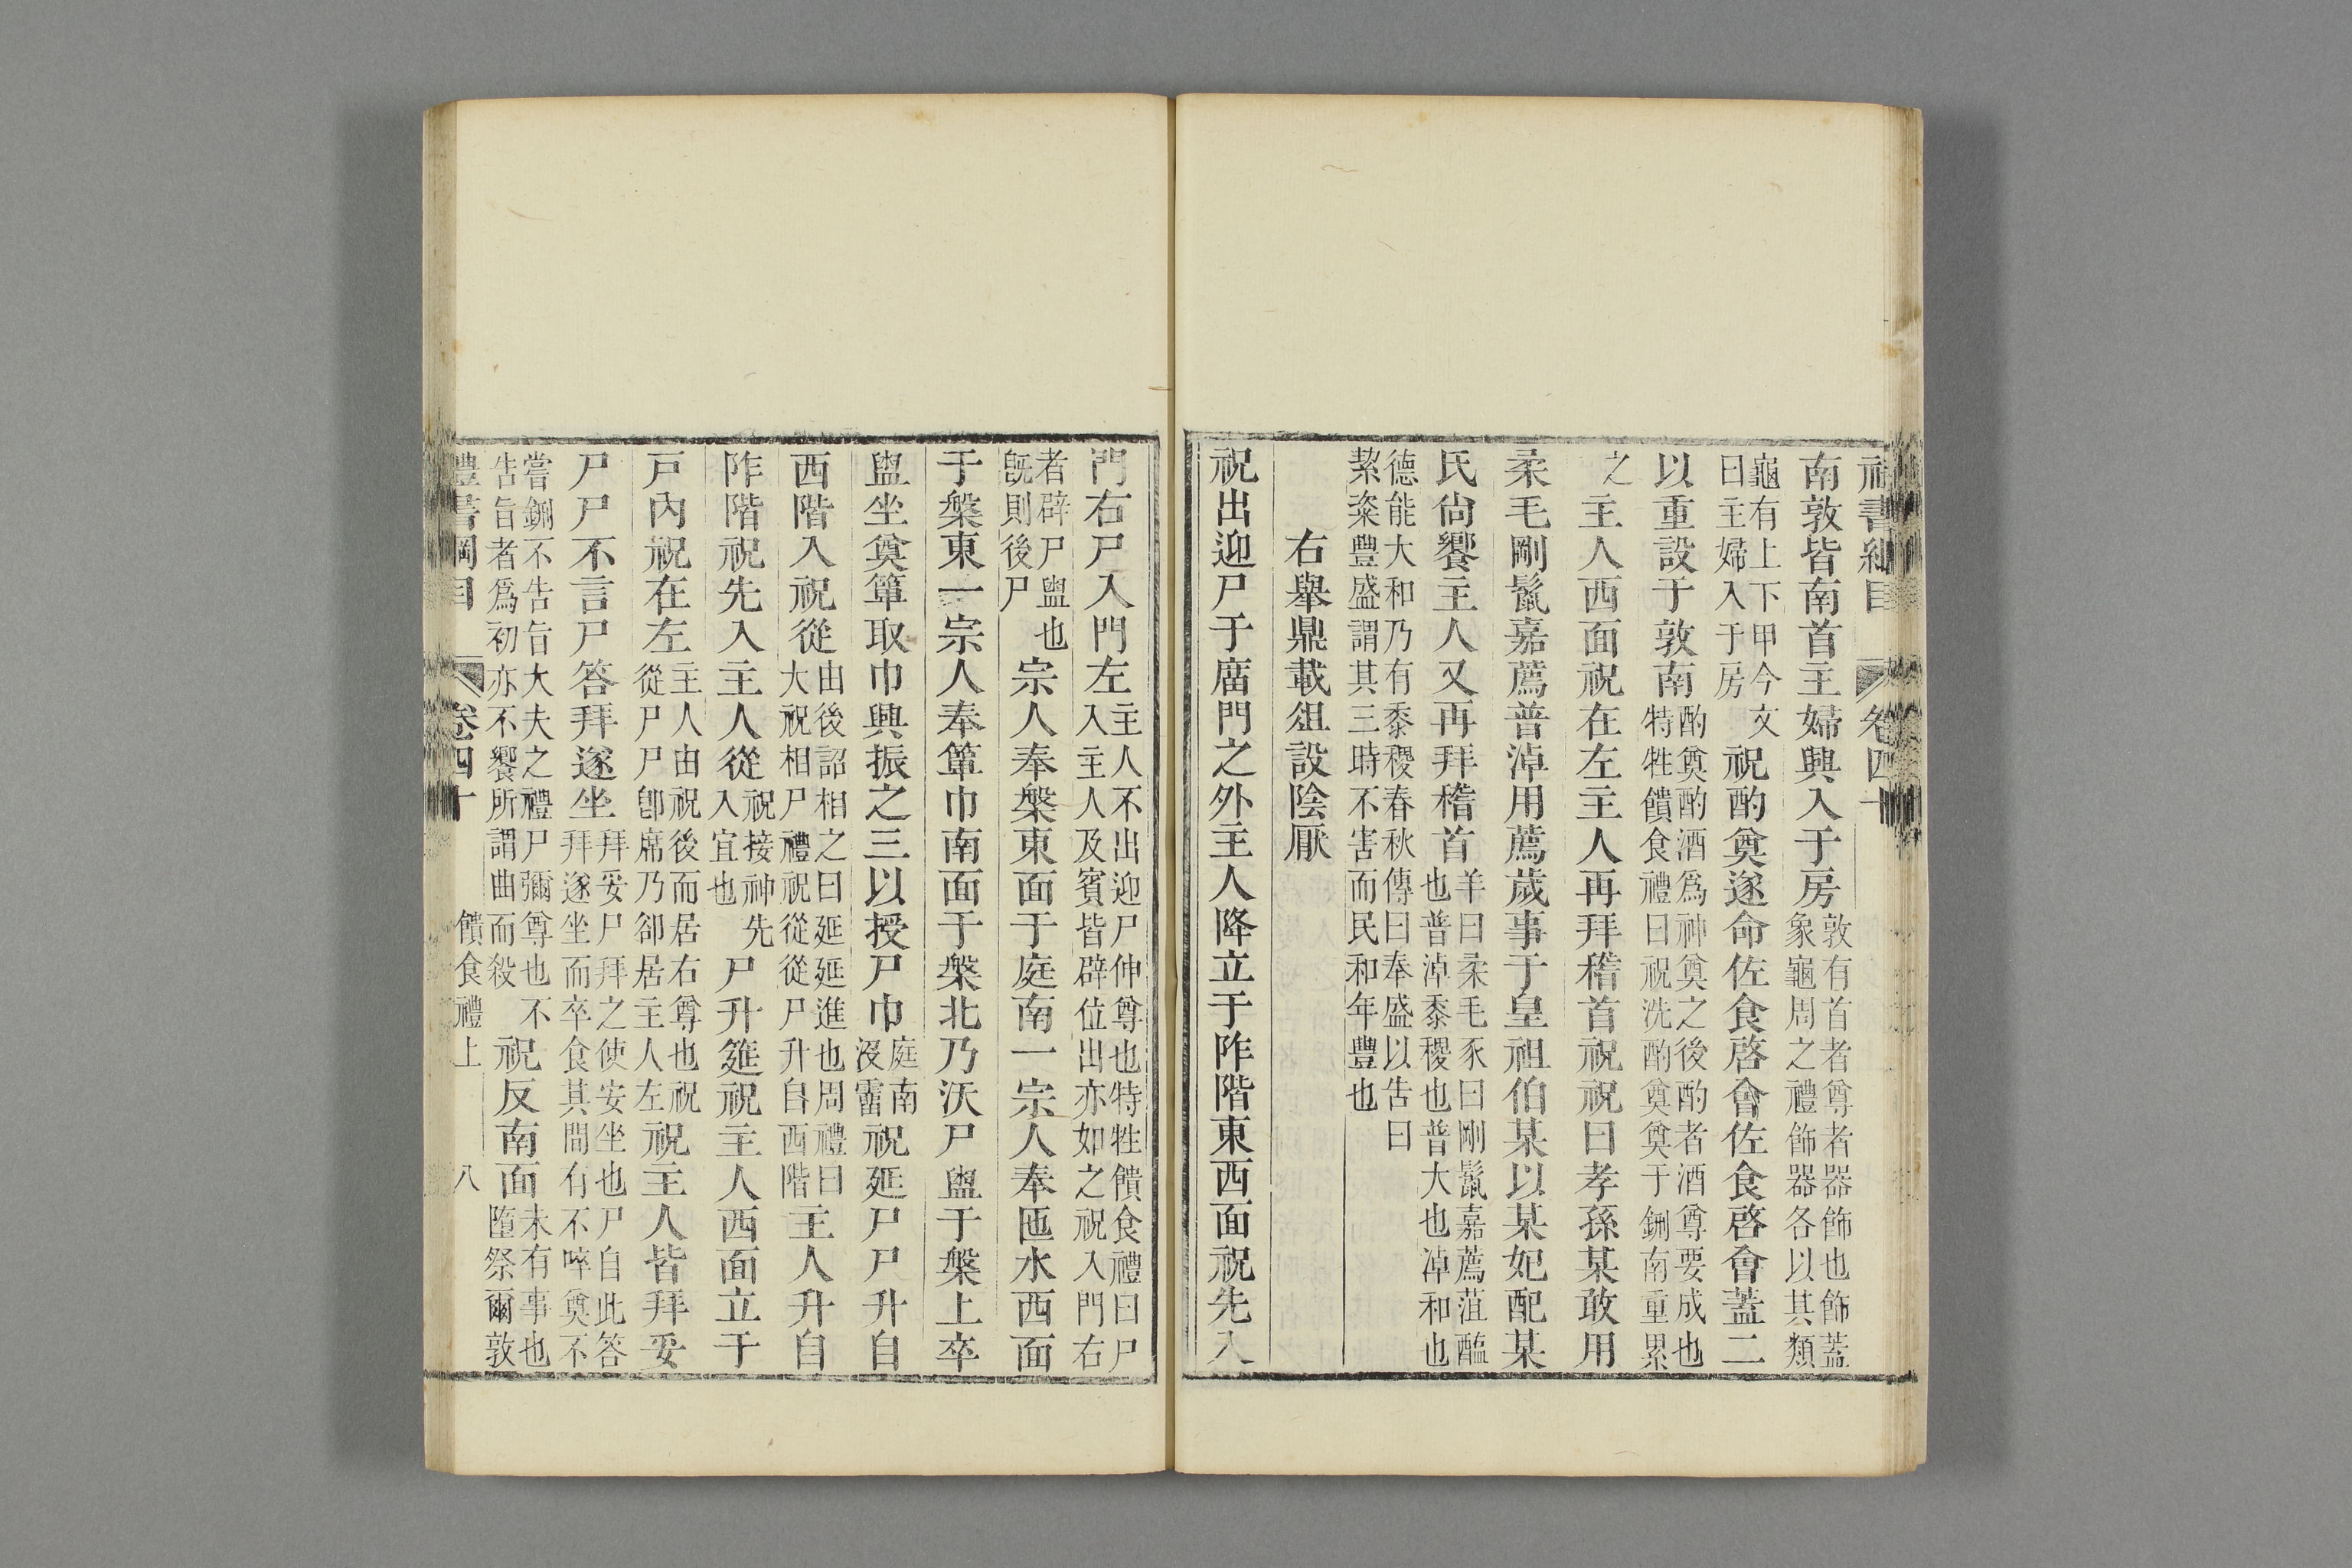 禮書綱目 卷四十
南敦皆南首主婦興入于房敦有首者尊者器飾也飾蓋象龜周之禮飾器各以其類
龜有上下甲今文曰主婦入于房祝酌奠遂命佐食啓會佐食啓會蓋二
以重設于敦南酌奠酌酒爲神奠之後酌者酒尊要成也特牲饋食禮曰祝洗酌奠奠于鉶南重累
之主人西面祝在左主人再拜稽首祝祝曰孝孫某敢用
柔毛剛鬣嘉薦普淖用薦歲事于皇祖伯某以某妃配某
氏尙饗主人又再拜稽首羊曰柔毛豕曰剛鬣嘉薦菹醢也普淖黍稷也普大也淖和也
德能大和乃有黍稷春秋傳曰奉盛以告曰絜粢豐盛謂其三時不害而民和年豐也
右舉鼎載俎設陰厭
祝出迎尸于庿門之外主人降立于阼階東西面祝先入
門右尸入門左主人不出迎尸伸尊也特牲饋食禮曰尸入主人及賓皆辟位出亦如之祝入門右
者辟尸盥也旣則後尸宗人奉槃東面于庭南一宗人奉匜水西面
于槃東一宗人奉簞巾南面于槃北乃沃尸盥于槃上卒
盥坐奠簞取巾興振之三以授尸巾庭南沒霤祝延尸尸升自
西階入祝從由後詔相之曰延延進也周禮曰大祝相尸禮祝從從尸升自西階主人升自
阼階祝先入主人從祝接神先入宜也尸升筵祝主人西面立于
戶內祝在左主人由祝後而居右尊也祝從尸尸卽席乃卻居主人左祝主人皆拜妥
尸尸不言尸答拜遂坐拜妥尸拜之使安坐也尸自此答拜遂坐而卒食其間有不啐奠不
嘗鉶不告旨大夫之禮尸彌尊也不告旨者爲初亦不饗所謂曲而殺祝反南面未有事也墮祭爾敦
禮書綱目 卷四十 饋食禮上 八